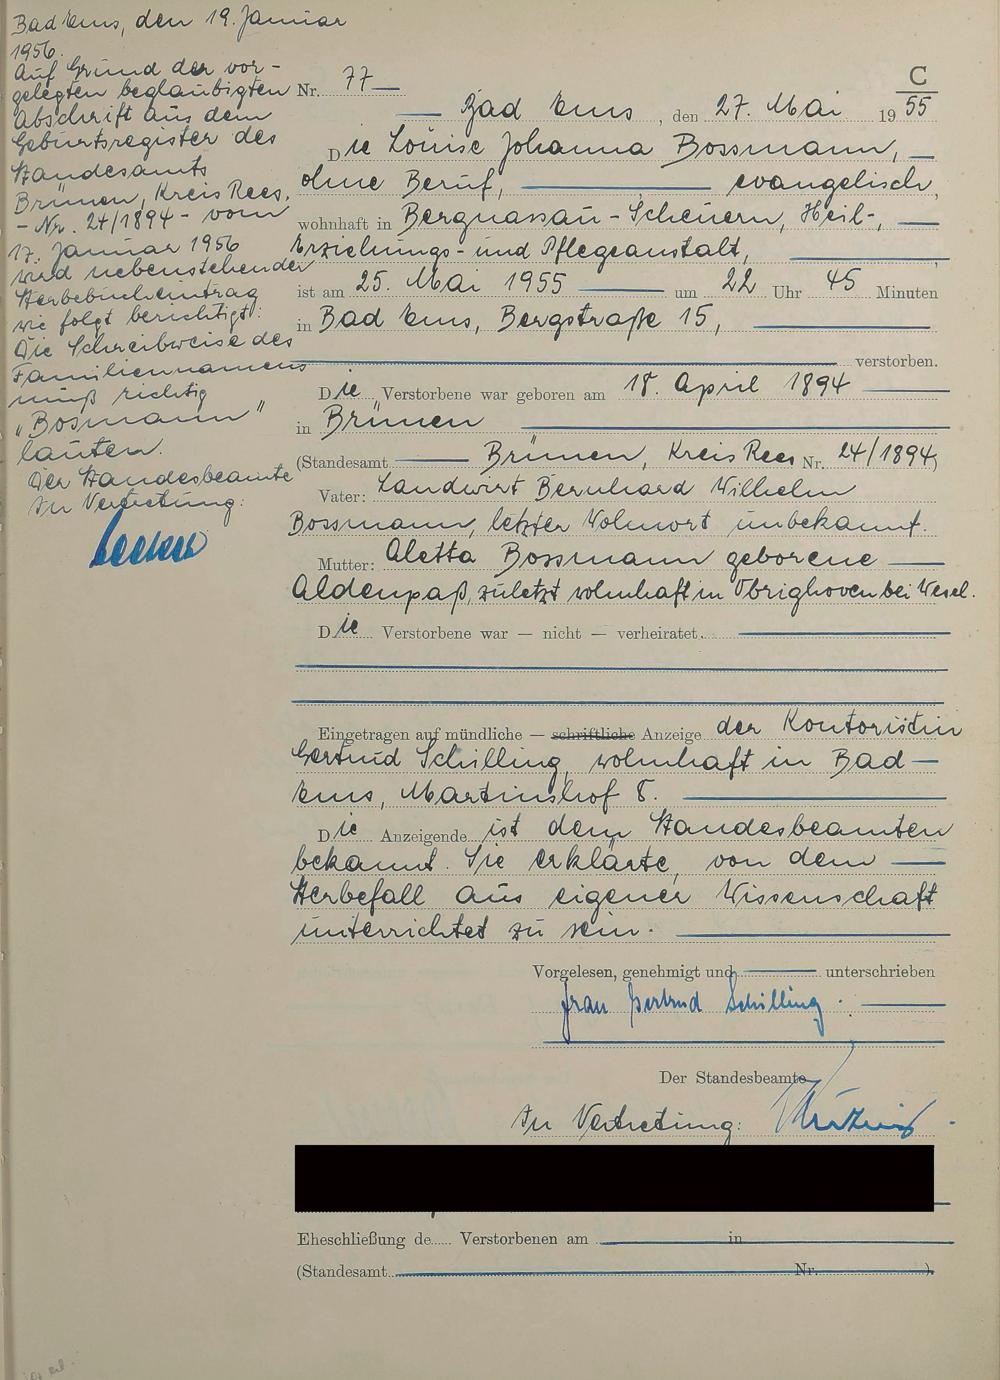 Bad Ems, den 19. Januar
1956.
Auf Grund der vor-
gelegten beglaubigten
Abschrift aus dem
Geburtsregister des
Standesamts
Brünen, Kreis Rees,
- Nr. 24/1894 - vom
17. Januar 1956
wird nebenstehender
Sterbebucheintrag
wie folgt berichtigt:
Die Schreibweise des
Familiennamens
muß richtig
„Bosmann"
lauten.
Der Standesbeamte
In Vertretung:
C
Nr. 77
Bad Ems, den 27. Mai 1955
Die Louise Johanna Bossmann,
ohne Beruf, evangelisch,
wohnhaft in Bergnassau-Scheuern, Heil-,
Erziehungs- und Pflegeanstalt,
ist am 25. Mai 1955 um 22 Uhr 45 Minuten
in Bad Ems, Bergstraße 15,
verstorben.
Die Verstorbene war geboren am 18. April 1894
in Brünen
(Standesamt Brünen, Kreis Rees Nr. 24/1894)
Vater: Landwirt Bernhard Wilhelm
Bossmann, letzter Wohnort unbekannt.
Mutter: Aletta Bossmann geborene
Aldenpaß, zuletzt wohnhaft in Obrighoven bei Wesel.
Die Verstorbene war — nicht — verheiratet.
Eingetragen auf mündliche — schriftliche Anzeige der Kontoristin
Gertrud Schilling, wohnhaft in Bad
Ems, Martinshof 8.
Die Anzeigende ist dem Standesbeamten
bekannt. Sie erklärte, von dem
Sterbefall aus eigener Wissenschaft
unterrichtet zu sein.
Vorgelesen, genehmigt und unterschrieben
Frau Gertrud Schilling.
Der Standesbeamte
In Vertretung:
Eheschließung de..... Verstorbenen am in
(Standesamt Nr. ).